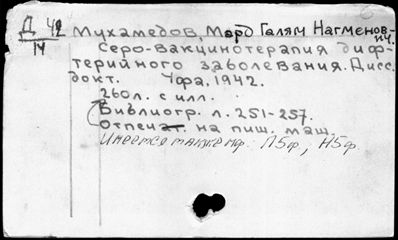 Д 42
14
Мухамедов, Мард Галям Нагменов-
ич.
Серо-вакцинотерапия диф-
терийного заболевания. Дисс.
докт. Уфа, 1942.
260 л. с илл.
Библиогр. л. 251-257.
Отпечат. на пиш. маш.
Имеется также мф. П5ф, Н5ф.